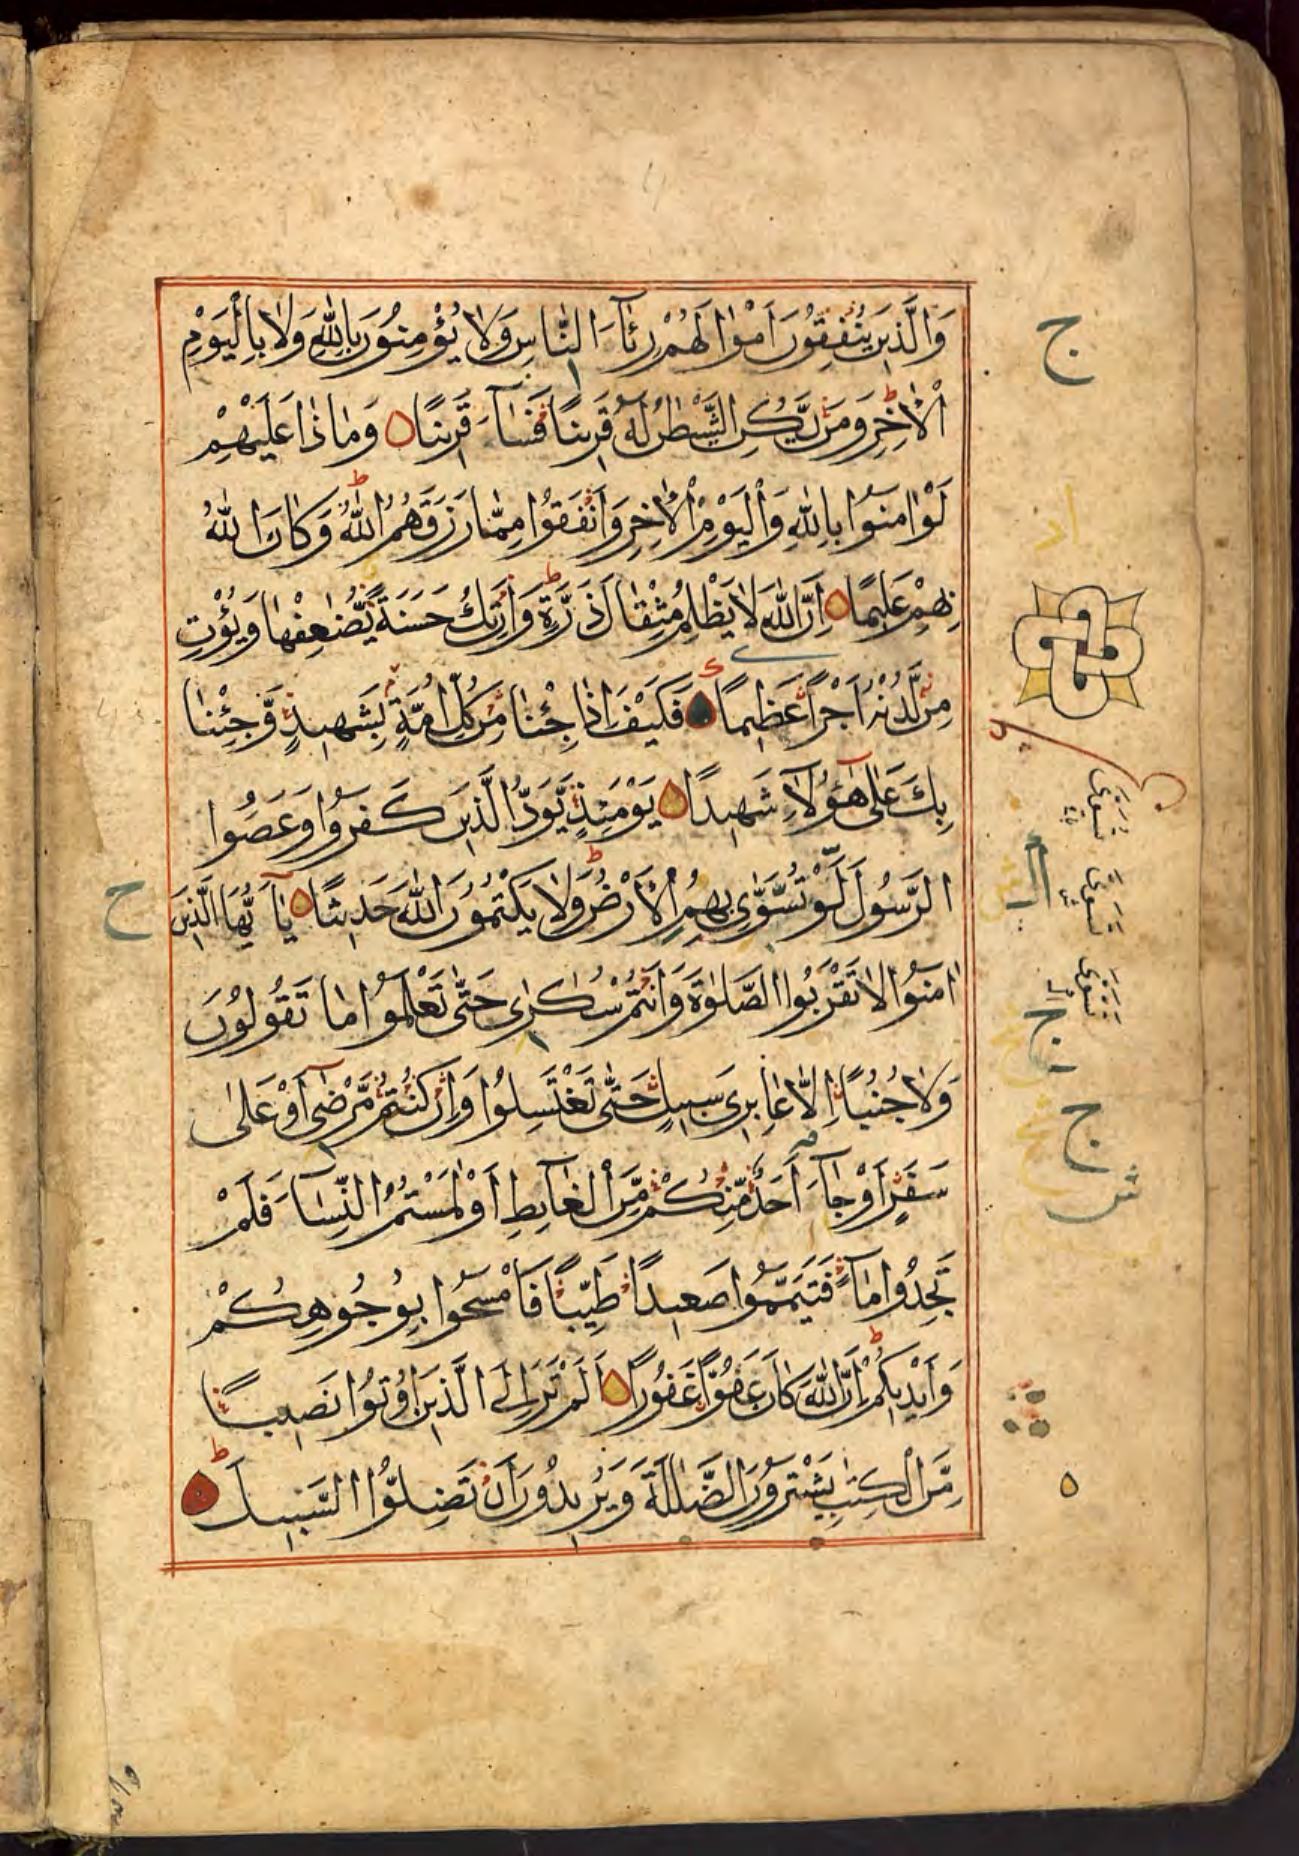 وَالَّذِينَ يُنْفِقُونَ اَمْوَالَهُمْ رِئَآءَ النَّاسِ وَلَا يُؤْمِنُونَ بِاللّٰهِ وَلَا بِالْيَوْمِ
الْاٰخِرِ وَمَنْ يَّكُنِ الشَّيْطٰنُ لَهُ قَرِينًا فَسَآءَ قَرِينًا وَمَاذَا عَلَيْهِمْ
لَوْ اٰمَنُوا بِاللّٰهِ وَالْيَوْمِ الْاٰخِرِ وَاَنْفَقُوا مِمَّا رَزَقَهُمُ اللّٰهُ وَكَانَ اللّٰهُ
بِهِمْ عَلِيمًا اِنَّ اللّٰهَ لَا يَظْلِمُ مِثْقَالَ ذَرَّةٍ وَاِنْ تَكُ حَسَنَةً يُّضٰعِفْهَا وَيُؤْتِ
مِنْ لَّدُنْهُ اَجْرًا عَظِيمًا فَكَيْفَ اِذَا جِئْنَا مِنْ كُلِّ اُمَّةٍ بِشَهِيدٍ وَّجِئْنَا
بِكَ عَلٰى هٰٓؤُلَآءِ شَهِيدًا يَوْمَئِذٍ يَّوَدُّ الَّذِينَ كَفَرُوا وَعَصَوُا
الرَّسُولَ لَوْ تُسَوّٰى بِهِمُ الْاَرْضُ وَلَا يَكْتُمُونَ اللّٰهَ حَدِيثًا يَآ اَيُّهَا الَّذِينَ
اٰمَنُوا لَا تَقْرَبُوا الصَّلٰوةَ وَاَنْتُمْ سُكٰرٰى حَتّٰى تَعْلَمُوا مَا تَقُولُونَ
وَلَا جُنُبًا اِلَّا عَابِرِى سَبِيلٍ حَتّٰى تَغْتَسِلُوا وَاِنْ كُنْتُمْ مَّرْضٰٓى اَوْ عَلٰى
سَفَرٍ اَوْ جَآءَ اَحَدٌ مِّنْكُمْ مِّنَ الْغَآئِطِ اَوْ لٰمَسْتُمُ النِّسَآءَ فَلَمْ
تَجِدُوا مَآءً فَتَيَمَّمُوا صَعِيدًا طَيِّبًا فَامْسَحُوا بِوُجُوهِكُمْ
وَاَيْدِيكُمْ اِنَّ اللّٰهَ كَانَ عَفُوًّا غَفُورًا اَلَمْ تَرَ اِلَى الَّذِينَ اُوتُوا نَصِيبًا
مِّنَ الْكِتٰبِ يَشْتَرُونَ الضَّلٰلَةَ وَيُرِيدُونَ اَنْ تَضِلُّوا السَّبِيلَ
ج
ح
تُسَوّٰى
تَسَّوّٰى
تَسَوّٰى
ج
ج
ش